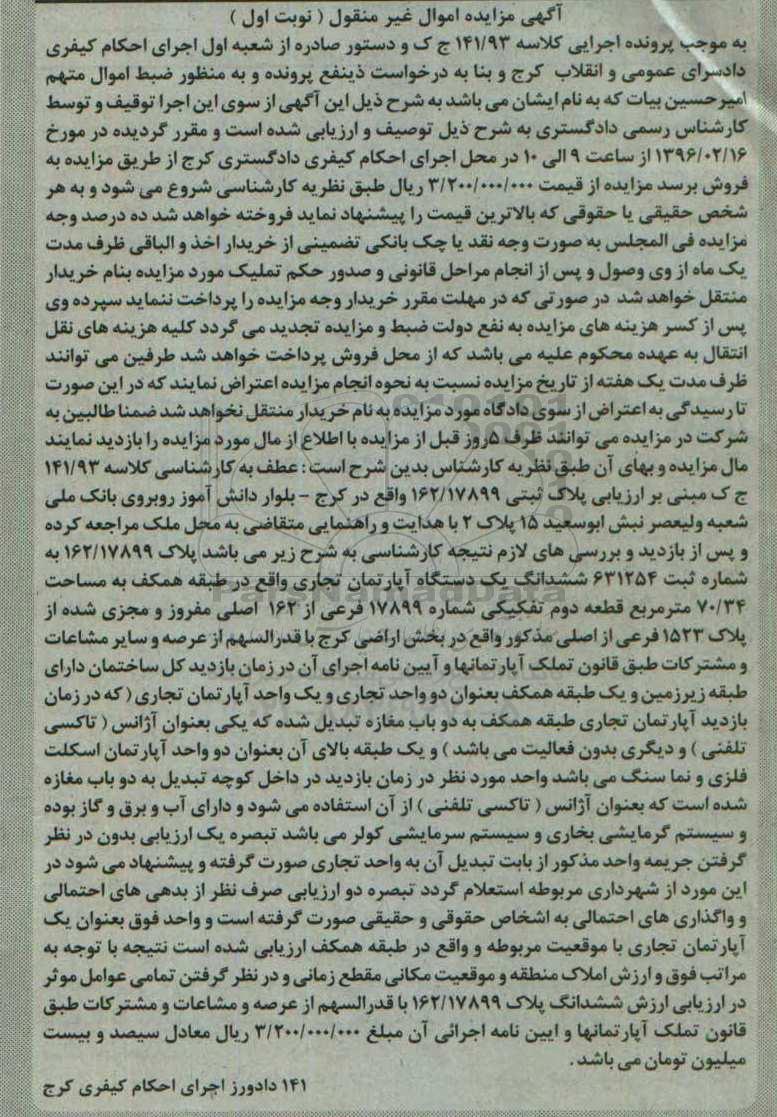 آگهی مزایده اموال غیر منقول ( نوبت اول )
به موجب پرونده اجرایی کلاسه ۱۴۱/۹۳ ج ک و دستور صادره از شعبه اول اجرای احکام کیفری
دادسرای عمومی و انقلاب کرج و بنا به درخواست ذینفع پرونده و به منظور ضبط اموال متهم
امیرحسین بیات که به نام ایشان می باشد به شرح ذیل این آگهی از سوی این اجرا توقیف و توسط
کارشناس رسمی دادگستری به شرح ذیل توصیف و ارزیابی شده است و مقرر گردیده در مورخ
۱۳۹۶/۰۲/۱۶ از ساعت ۹ الی ۱۰ در محل اجرای احکام کیفری دادگستری کرج از طریق مزایده به
فروش برسد مزایده از قیمت ۳/۲۰۰/۰۰۰/۰۰۰ ریال طبق نظریه کارشناسی شروع می شود و به هر
شخص حقیقی یا حقوقی که بالاترین قیمت را پیشنهاد نماید فروخته خواهد شد ده درصد وجه
مزایده فی المجلس به صورت وجه نقد یا چک بانکی تضمینی از خریدار اخذ و الباقی ظرف مدت
یک ماه از وی وصول و پس از انجام مراحل قانونی و صدور حکم تملیک مورد مزایده بنام خریدار
منتقل خواهد شد در صورتی که در مهلت مقرر خریدار وجه مزایده را پرداخت ننماید سپرده وی
پس از کسر هزینه های مزایده به نفع دولت ضبط و مزایده تجدید می گردد کلیه هزینه های نقل
انتقال به عهده محکوم علیه می باشد که از محل فروش پرداخت خواهد شد طرفین می توانند
ظرف مدت یک هفته از تاریخ مزایده نسبت به نحوه انجام مزایده اعتراض نمایند که در این صورت
تا رسیدگی به اعتراض از سوی دادگاه مورد مزایده به نام خریدار منتقل نخواهد شد ضمنا طالبین به
شرکت در مزایده می توانند ظرف ۵روز قبل از مزایده با اطلاع از مال مورد مزایده را بازدید نمایند
مال مزایده و بهای آن طبق نظریه کارشناس بدین شرح است : عطف به کارشناسی کلاسه ۱۴۱/۹۳
ج ک مبنی بر ارزیابی پلاک ثبتی ۱۶۲/۱۷۸۹۹ واقع در کرج - بلوار دانش آموز روبروی بانک ملی
شعبه ولیعصر نبش ابوسعید ۱۵ پلاک ۲ با هدایت و راهنمایی متقاضی به محل ملک مراجعه کرده
و پس از بازدید و بررسی های لازم نتیجه کارشناسی به شرح زیر می باشد پلاک ۱۶۲/۱۷۸۹۹ به
شماره ثبت ۶۳۱۲۵۴ ششدانگ یک دستگاه آپارتمان تجاری واقع در طبقه همکف به مساحت
۷۰/۳۴ مترمربع قطعه دوم تفکیکی شماره ۱۷۸۹۹ فرعی از ۱۶۲ اصلی مفروز و مجزی شده از
پلاک ۱۵۲۳ فرعی از اصلی مذکور واقع در بخش اراضی کرج با قدرالسهم از عرصه و سایر مشاعات
و مشترکات طبق قانون تملک آپارتمانها و آیین نامه اجرای آن در زمان بازدید کل ساختمان دارای
طبقه زیرزمین و یک طبقه همکف بعنوان دو واحد تجاری و یک واحد آپارتمان تجاری ( که در زمان
بازدید آپارتمان تجاری طبقه همکف به دو باب مغازه تبدیل شده که یکی بعنوان آژانس ( تاکسی
تلفنی ) و دیگری بدون فعالیت می باشد ) و یک طبقه بالای آن بعنوان دو واحد آپارتمان اسکلت
فلزی و نما سنگ می باشد واحد مورد نظر در زمان بازدید در داخل کوچه تبدیل به دو باب مغازه
شده است که بعنوان آژانس ( تاکسی تلفنی ) از آن استفاده می شود و دارای آب و برق و گاز بوده
و سیستم گرمایشی بخاری و سیستم سرمایشی کولر می باشد تبصره یک ارزیابی بدون در نظر
گرفتن جریمه واحد مذکور از بابت تبدیل آن به واحد تجاری صورت گرفته و پیشنهاد می شود در
این مورد از شهرداری مربوطه استعلام گردد تبصره دو ارزیابی صرف نظر از بدهی های احتمالی
و واگذاری های احتمالی به اشخاص حقوقی و حقیقی صورت گرفته است و واحد فوق بعنوان یک
آپارتمان تجاری با موقعیت مربوطه و واقع در طبقه همکف ارزیابی شده است نتیجه با توجه به
مراتب فوق و ارزش املاک منطقه و موقعیت مکانی مقطع زمانی و در نظر گرفتن تمامی عوامل موثر
در ارزیابی ارزش ششدانگ پلاک ۱۶۲/۱۷۸۹۹ با قدرالسهم از عرصه و مشاعات و مشترکات طبق
قانون تملک آپارتمانها و ایین نامه اجرائی آن مبلغ ۳/۲۰۰/۰۰۰/۰۰۰ ریال معادل سیصد و بیست
میلیون تومان می باشد .
۱۴۱ دادورز اجرای احکام کیفری کرج
ParsNamadData